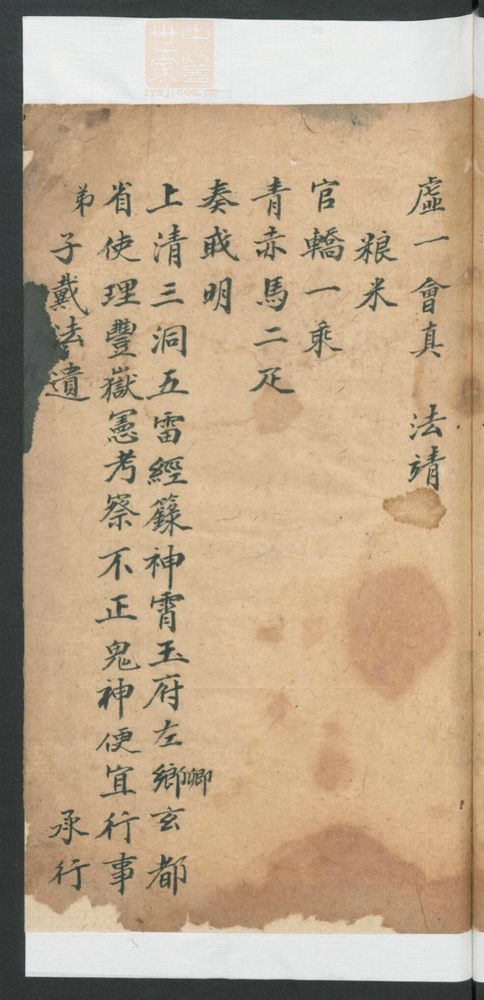 虛一會真 法靖
粮米
官轎一乘
青赤馬二疋
奏戓明
上清三洞五雷經籙神霄玉府左鄉卿玄都
省使理豐嶽憲考察不正鬼神便宜行事
弟子戴法遺 承行
中醫世家
zysj.com.cn